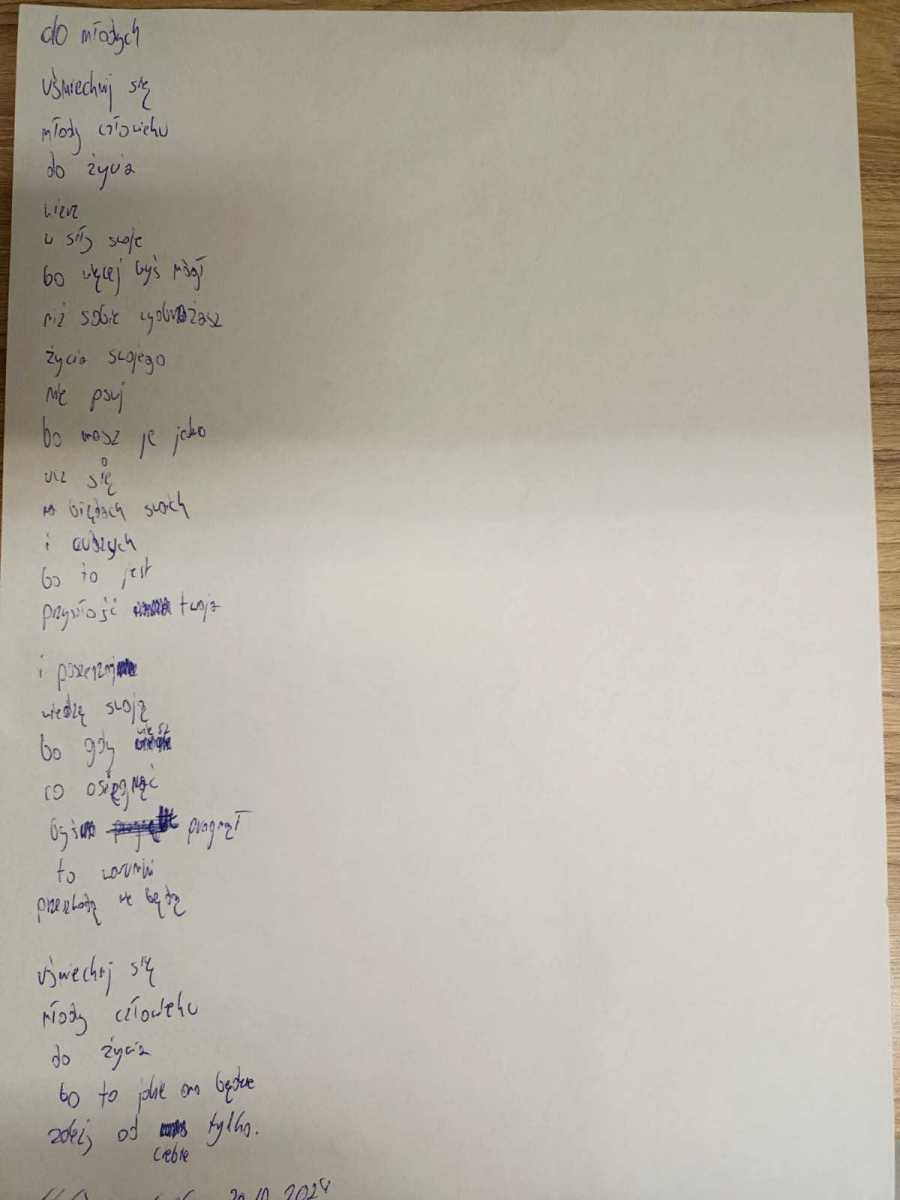 do młodych
uśmiechnij się
młody człowieku
do życia
wierz
w siły swoje
bo więcej byś mógł
niż sobie wyobrażasz
życia swojego
nie psuj
bo masz je jako
ucz się
na błędach swoich
i cudzych
bo to jest
przyszłość twoja
i poszerzaj
wiedzę swoją
bo gdy wiesz
co osiągnąć
byś pragnął
to warunki
przeszkodą nie będą
uśmiechnij się
młody człowieku
do życia
bo to jakie ono będzie
zależy od ciebie tylko.
2024